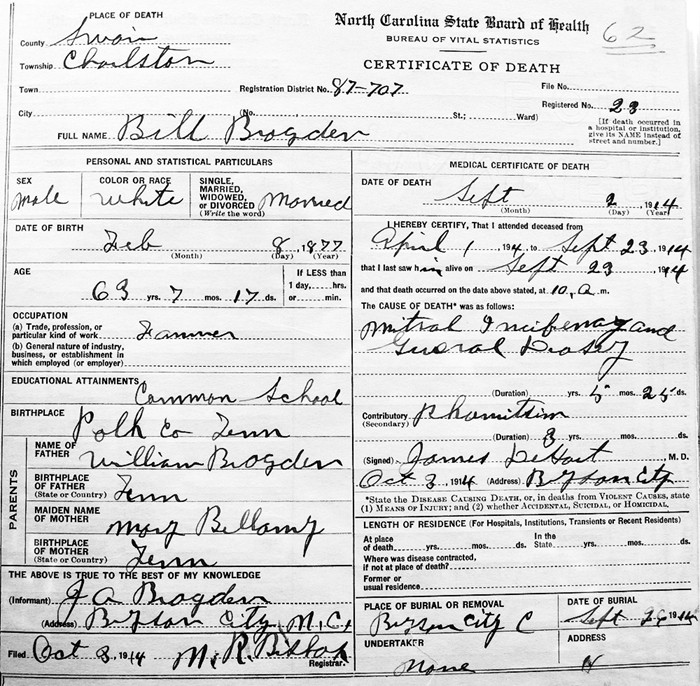 PLACE OF DEATH
North Carolina State Board of Health
BUREAU OF VITAL STATISTICS
62
County Swain
Township Charlston
CERTIFICATE OF DEATH
Town Registration District No. 87-707 File No.
Registered No. 23
City (No. St.; Ward)
[If death occurred in a hospital or institution, give its NAME instead of street and number.]
FULL NAME Bill Brogden
PERSONAL AND STATISTICAL PARTICULARS
SEX male
COLOR OR RACE white
SINGLE, MARRIED, WIDOWED, OR DIVORCED (Write the word) Married
DATE OF BIRTH
Feb 8, 1877
(Month) (Day) (Year)
AGE
63 yrs. 7 mos. 17 ds.
If LESS than 1 day,....hrs. or....min.
OCCUPATION
(a) Trade, profession, or particular kind of work Farmer
(b) General nature of industry, business, or establishment in which employed (or employer)
EDUCATIONAL ATTAINMENTS Common School
BIRTHPLACE Polk Co Tenn
PARENTS
NAME OF FATHER William Brogden
BIRTHPLACE OF FATHER (State or Country) Tenn
MAIDEN NAME OF MOTHER Mary Bellamy
BIRTHPLACE OF MOTHER (State or Country) Tenn
THE ABOVE IS TRUE TO THE BEST OF MY KNOWLEDGE
(Informant) J A Brogden
(Address) Bryson City, N.C.
Filed Oct 3, 1914 M. R. Registrar.
MEDICAL CERTIFICATE OF DEATH
DATE OF DEATH
Sept 2 1914
(Month) (Day) (Year)
I HEREBY CERTIFY, That I attended deceased from
April 1 1914 to Sept 23, 1914
that I last saw him alive on Sept 23 1914
and that death occurred on the date above stated, at 10, a m.
The CAUSE OF DEATH* was as follows:
Mitral and
General
(Duration) yrs. 5 mos. 25 ds.
Contributory (Secondary)
(Duration) 3 yrs. mos. ds.
(Signed) James DeHart M. D.
Oct 3, 1914 (Address) Bryson City
*State the DISEASE CAUSING DEATH, or, in deaths from VIOLENT CAUSES, state (1) MEANS OF INJURY; and (2) whether ACCIDENTAL, SUICIDAL, or HOMICIDAL.
LENGTH OF RESIDENCE (For Hospitals, Institutions, Transients or Recent Residents)
At place of death yrs. mos. ds. In the State yrs. mos. ds.
Where was disease contracted, if not at place of death?
Former or usual residence
PLACE OF BURIAL OR REMOVAL
Bryson City C
DATE OF BURIAL
Sept 26 1914
UNDERTAKER
None
ADDRESS